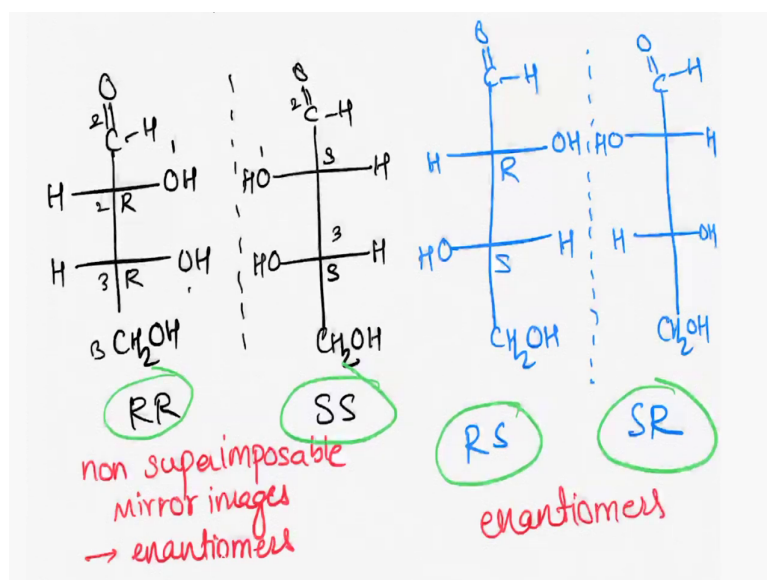 O
2 C-H
1
H OH
2 R
H OH
3 R
CH2OH
RR
O
2 C-H
1
HO S H
3
HO H
S
CH2OH
SS
non superimposable
mirror images
→ enantiomers
O
C-H
H OH
R
HO H
S
CH2OH
RS
O
C-H
HO H
H OH
CH2OH
SR
enantiomers